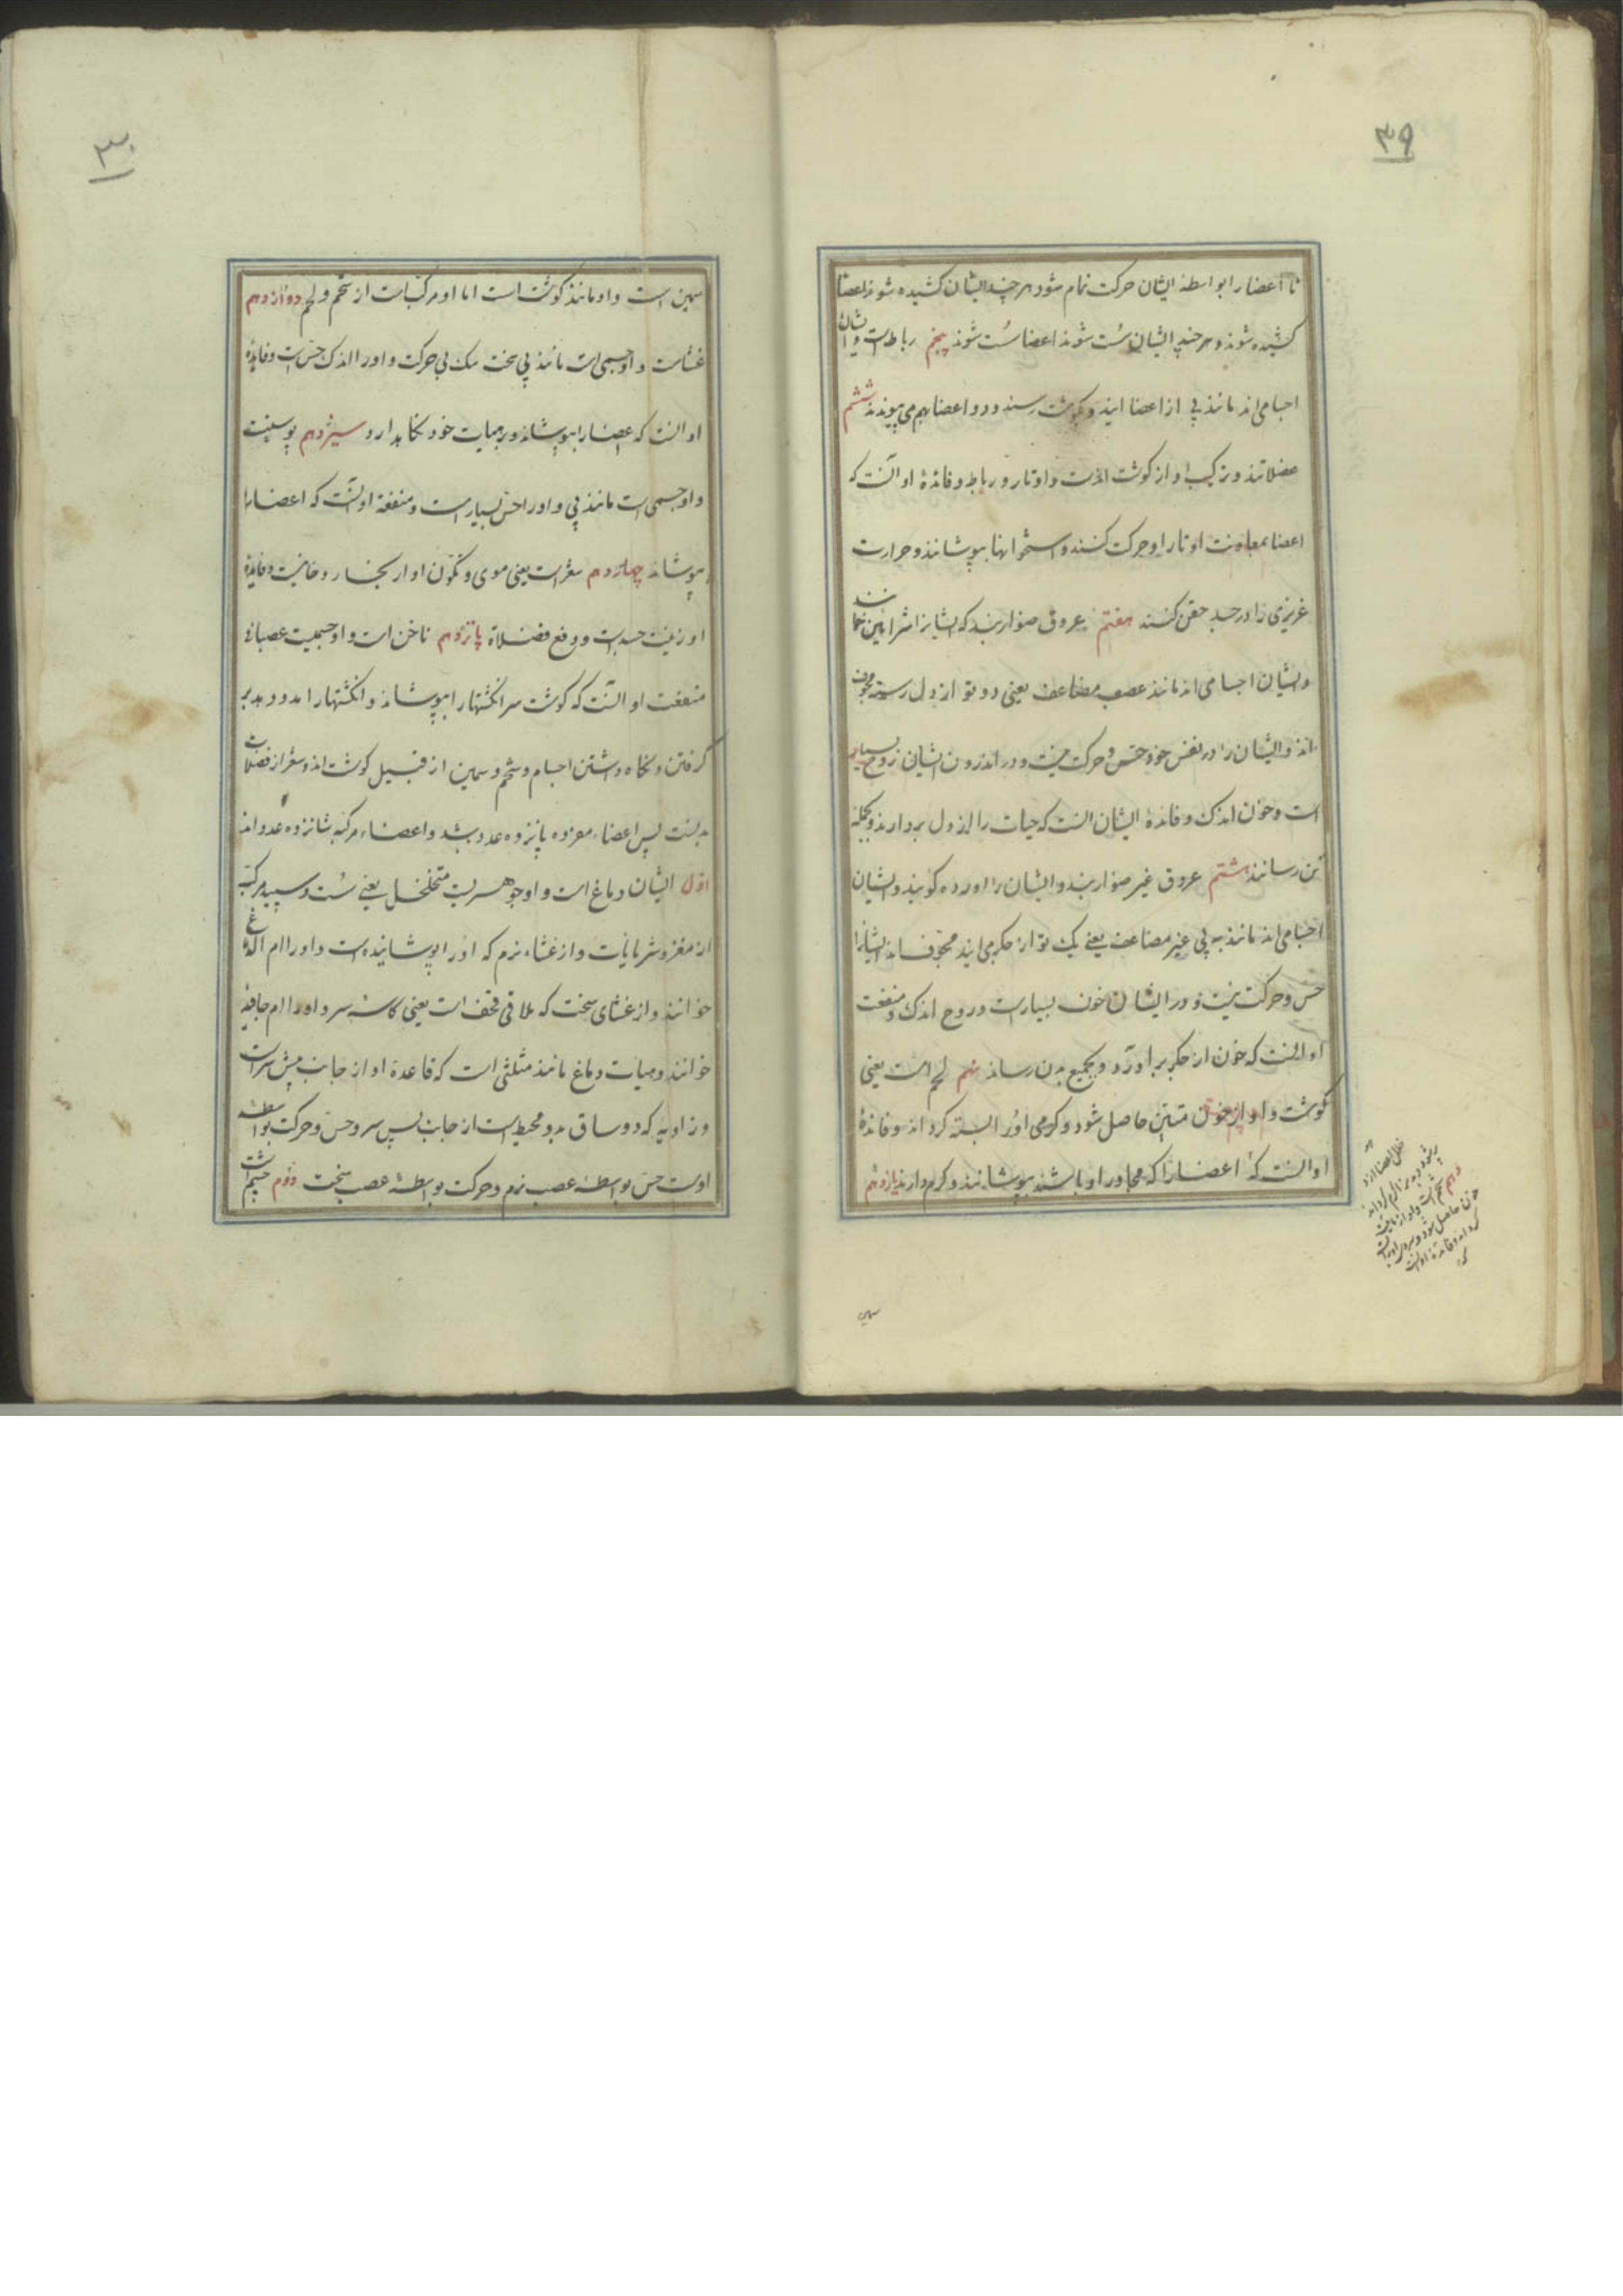 ۳۹
تا اعضا را بواسطه ایشان حرکت تمام شود هر چند ایشان کشیده شوند اعضا
کشیده شوند و هر چند ایشان سُست شوند اعضا سُست شوند پنجم رباط است و ایشان
اجسامی اند مانند پی از اعضا ایند و بکوشت رسند و دو اعضا بهم می پیوندند ششم
عضلاتند و ترکیب او از کوشت است و اوتار و رباط و فائدهٔ او آنست که
اعضا بمعاونت اوتار او حرکت کنند و استخوانها بپوشانند و حرارت
غریزی را در جسد حقن کنند هفتم عروق ضواربند که ایشانرا شرائین خوانند
و ایشان اجسامی اند مانند عصب مضاعف یعنی دو تو از دل رسته مجوف
اند و ایشان را در نفس خود حس و حرکت نیست و در اندرون ایشان روح بسیار
است و خون اندک و فائدهٔ ایشان انست که حیات را از دل بردارند و بجمله
تن رسانند هشتم عروق غیر ضواربند و ایشان را اورده کویند و ایشان
اجسامی اند مانند به پی غیر مضاعف یعنی یک تو از جکر می ایند مجوف اند ایشانرا
حس و حرکت نیست و در ایشان خون بسیار است و روح اندک و منفعت
او انست که خون از جکر بر آورد و بجمیع بدن رساند نهم لحم است یعنی
کوشت و او از خون متین حاصل شود و کرمی اورا بسته کرداند و فائدهٔ
او انست که اعضا را که مجاور او باشند بپوشانند و کرم دارند یازدهم
دهم شحم است و او از مائیت
خون حاصل شود و سردی اورا بسته
کرداند و فائدهٔ او انست
که
سمین
۳۰
سمین است و او مانند کوشت است اما او مرکب است از شحم و لحم دوازدهم
غشاست و او جسمی است مانند پی سخت تنک بی حرکت و اورا اندک حس است و فایدهٔ
او انست که اعضا را بپوشاند و بر هیات خود نکاهدارد سیزدهم پوستست
و او جسمی است مانند پی و اورا حس بسیار است و منفعة او آنست که اعضا را
بپوشاند چهاردهم شعر است یعنی موی و تکون او از بخار دخانیست و فایدهٔ
او زینت جسد است و دفع فضلات پانزدهم ناخن است و او جسمیست عصبانی
منفعت او آنست که کوشت سر انکشتها را بپوشاند و انکشتها را مدد دهد بر
کرفتن و نکاه داشتن اجسام و شحم و سمین از قبیل کوشت اند و شعر از فضلات
بدنست پس اعضاء مفرده پانزده عدد باشد و اعضاء مرکبه شانزده عدد اند
اوّل ایشان دماغ است و او جوهریست متخلخل یعنی سُست و سپید مرکب
از مغز و شریانات و از غشاء نرم که او را پوشانیده است و اورا ام الدماغ
خوانند و از غشای سخت که ملاقی قحف است یعنی کاسه سر و اورا ام جافیه
خوانند و هیات دماغ مانند مثلثی است که قاعدهٔ او از جانب پیش سر است
و زاویه که دو ساق بدو محیط است از جانب پس سر و حس و حرکت بواسطه
اوست حس بواسطه عصب نرم و حرکت بواسطه عصب سخت دوُم چشم است